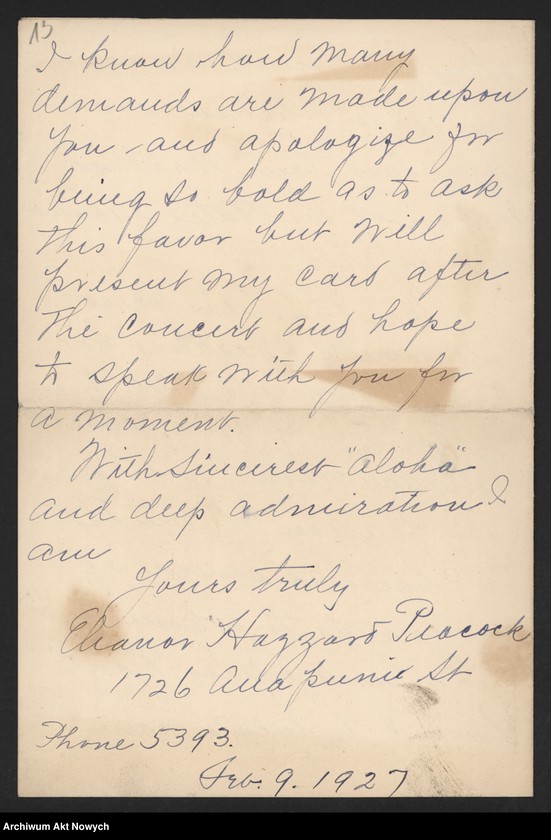 13
I know how many
demands are made upon
you and apologize for
being so bold as to ask
this favor but will
present my card after
the concert and hope
to speak with you for
a moment.
With sincerest "aloha"
and deep admiration I
am
Yours truly
Eleanor Hazzard Peacock
1726 Anapuni St
Phone 5393.
Feb. 9. 1927
Archiwum Akt Nowych